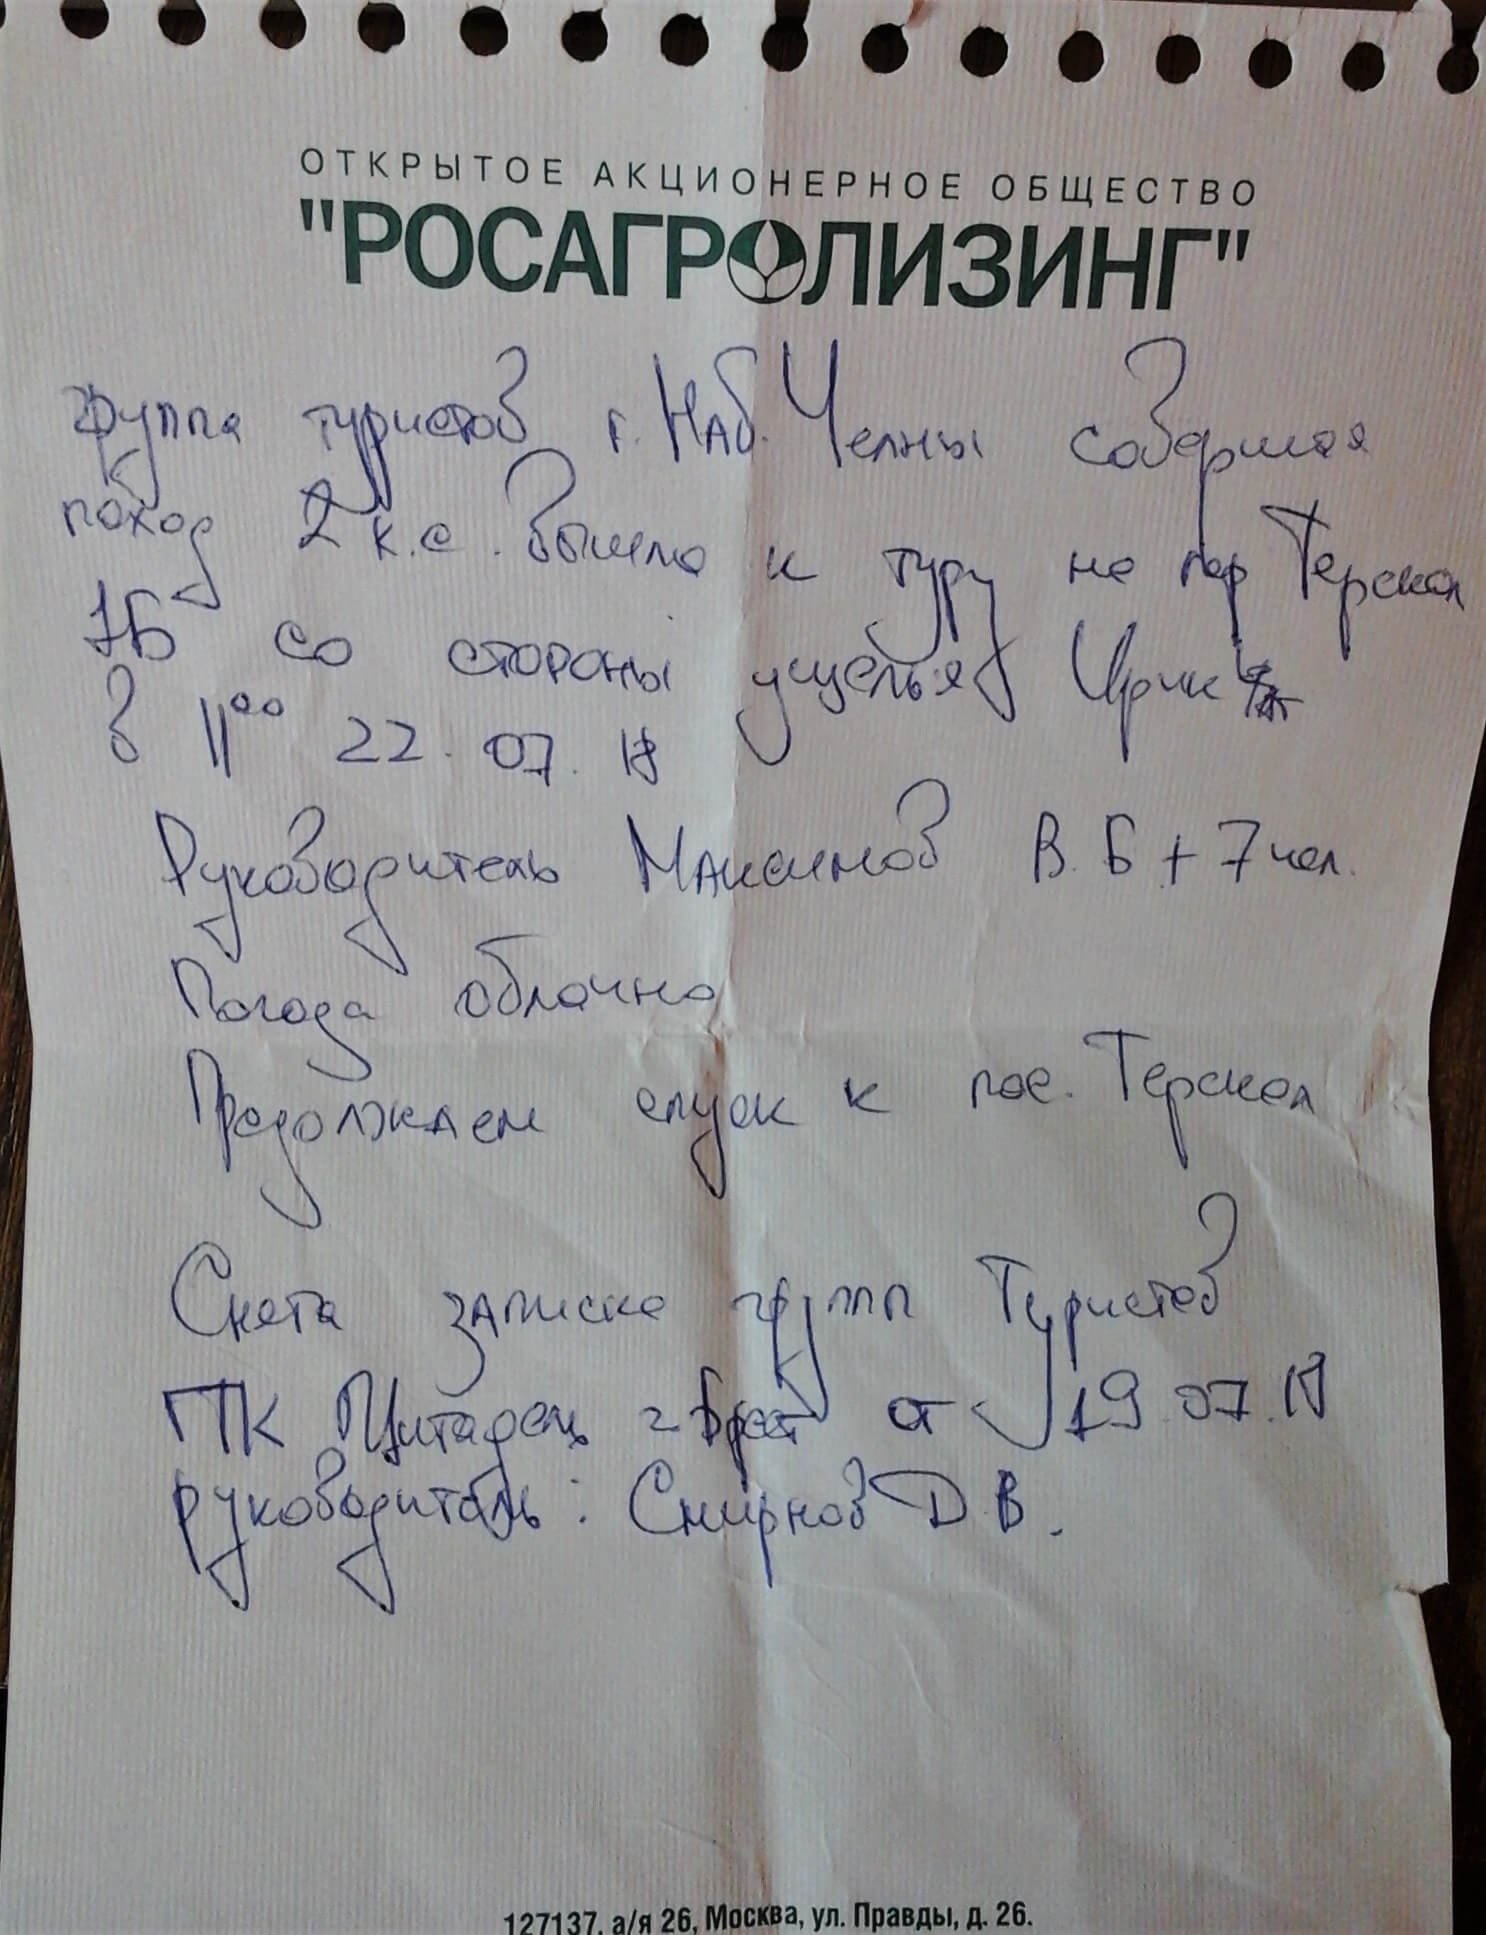 ОТКРЫТОЕ АКЦИОНЕРНОЕ ОБЩЕСТВО
"РОСАГРОЛИЗИНГ"
группа туристов г. Наб. Челны совершая
поход 2 к.с. вышла к туру на пер Терскол
1Б со стороны ущелья Ирик
в 11⁰⁰ 22.07.18
Руководитель Максимов В.Б + 7 чел.
Погода облачно
Продолжаем спуск к пос. Терскол
Снята записка групп Туристов
ПК Цитадель г Брест от 19.07.18
руководитель: Смирнов Д.В.
127137, а/я 26, Москва, ул. Правды, д. 26.